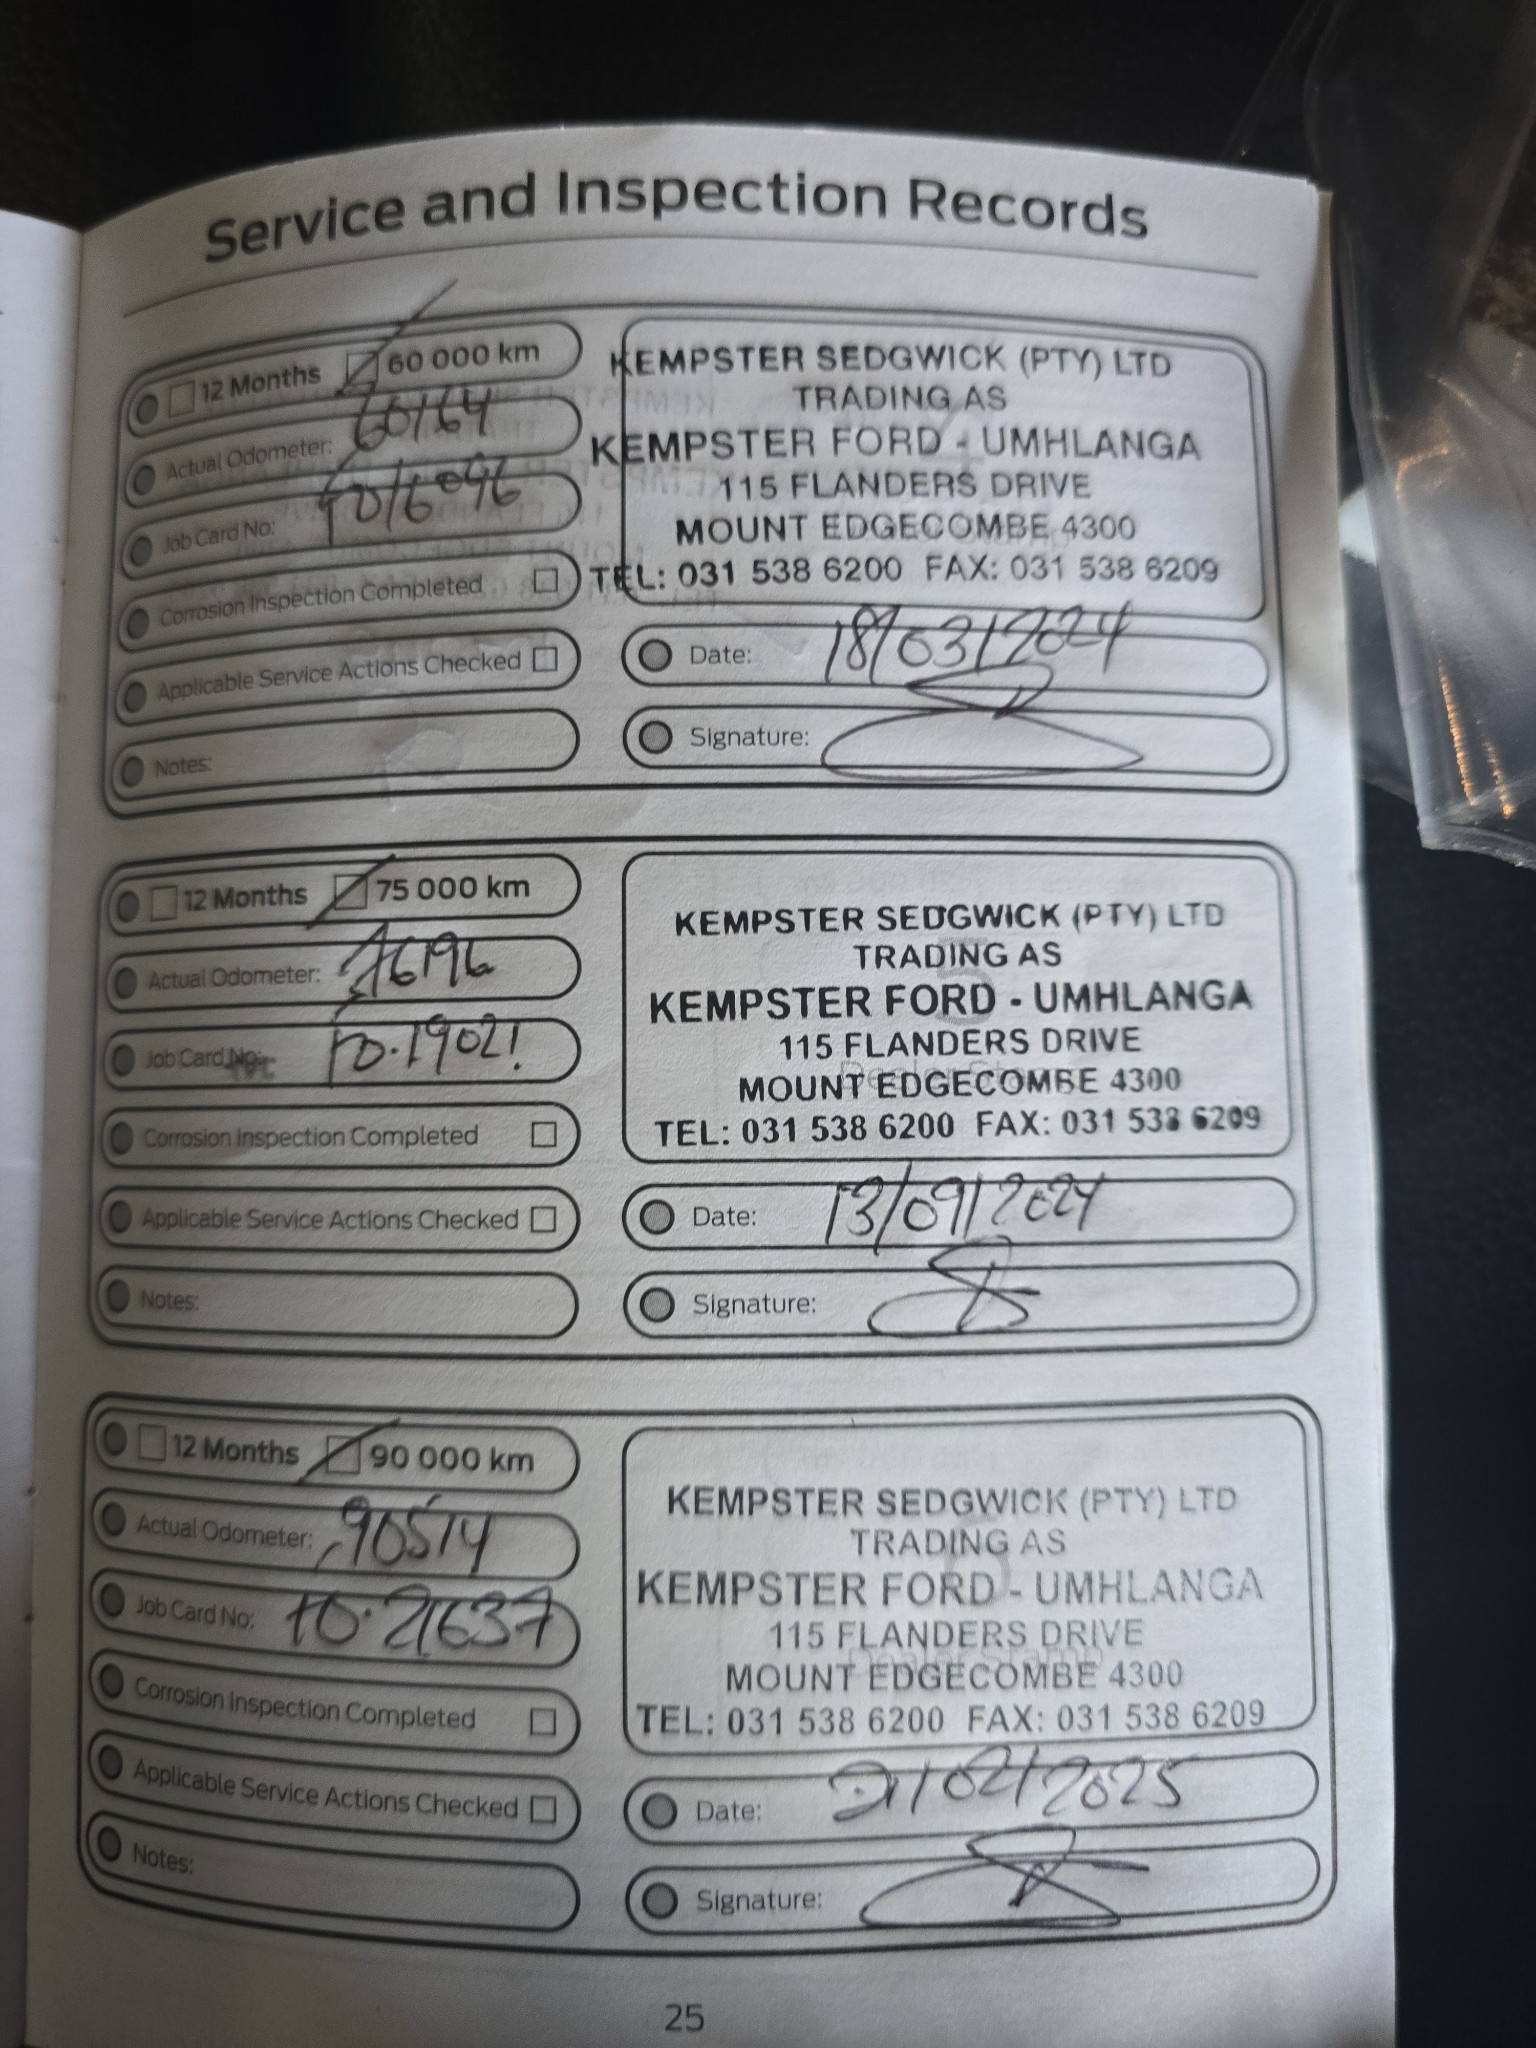 Service and Inspection Records
12 Months 60 000 km
Actual Odometer: 60164
Job Card No: 
Corrosion Inspection Completed
Applicable Service Actions Checked
Notes:
KEMPSTER SEDGWICK (PTY) LTD
TRADING AS
KEMPSTER FORD - UMHLANGA
115 FLANDERS DRIVE
MOUNT EDGECOMBE 4300
TEL: 031 538 6200 FAX: 031 538 6209
Date: 18/03/2024
Signature:
12 Months 75 000 km
Actual Odometer: 76196
Job Card No:
Corrosion Inspection Completed
Applicable Service Actions Checked
Notes:
KEMPSTER SEDGWICK (PTY) LTD
TRADING AS
KEMPSTER FORD - UMHLANGA
115 FLANDERS DRIVE
MOUNT EDGECOMBE 4300
TEL: 031 538 6200 FAX: 031 538 6209
Date: 13/09/2024
Signature:
12 Months 90 000 km
Actual Odometer: 90514
Job Card No: 10.21637
Corrosion Inspection Completed
Applicable Service Actions Checked
Notes:
KEMPSTER SEDGWICK (PTY) LTD
TRADING AS
KEMPSTER FORD - UMHLANGA
115 FLANDERS DRIVE
MOUNT EDGECOMBE 4300
TEL: 031 538 6200 FAX: 031 538 6209
Date: 21/02/2025
Signature:
25